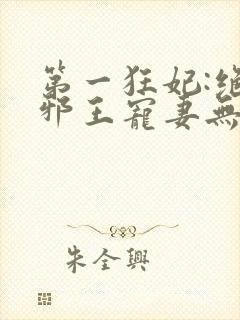 第一狂妃:绝
邪王寵妻無
朱全興